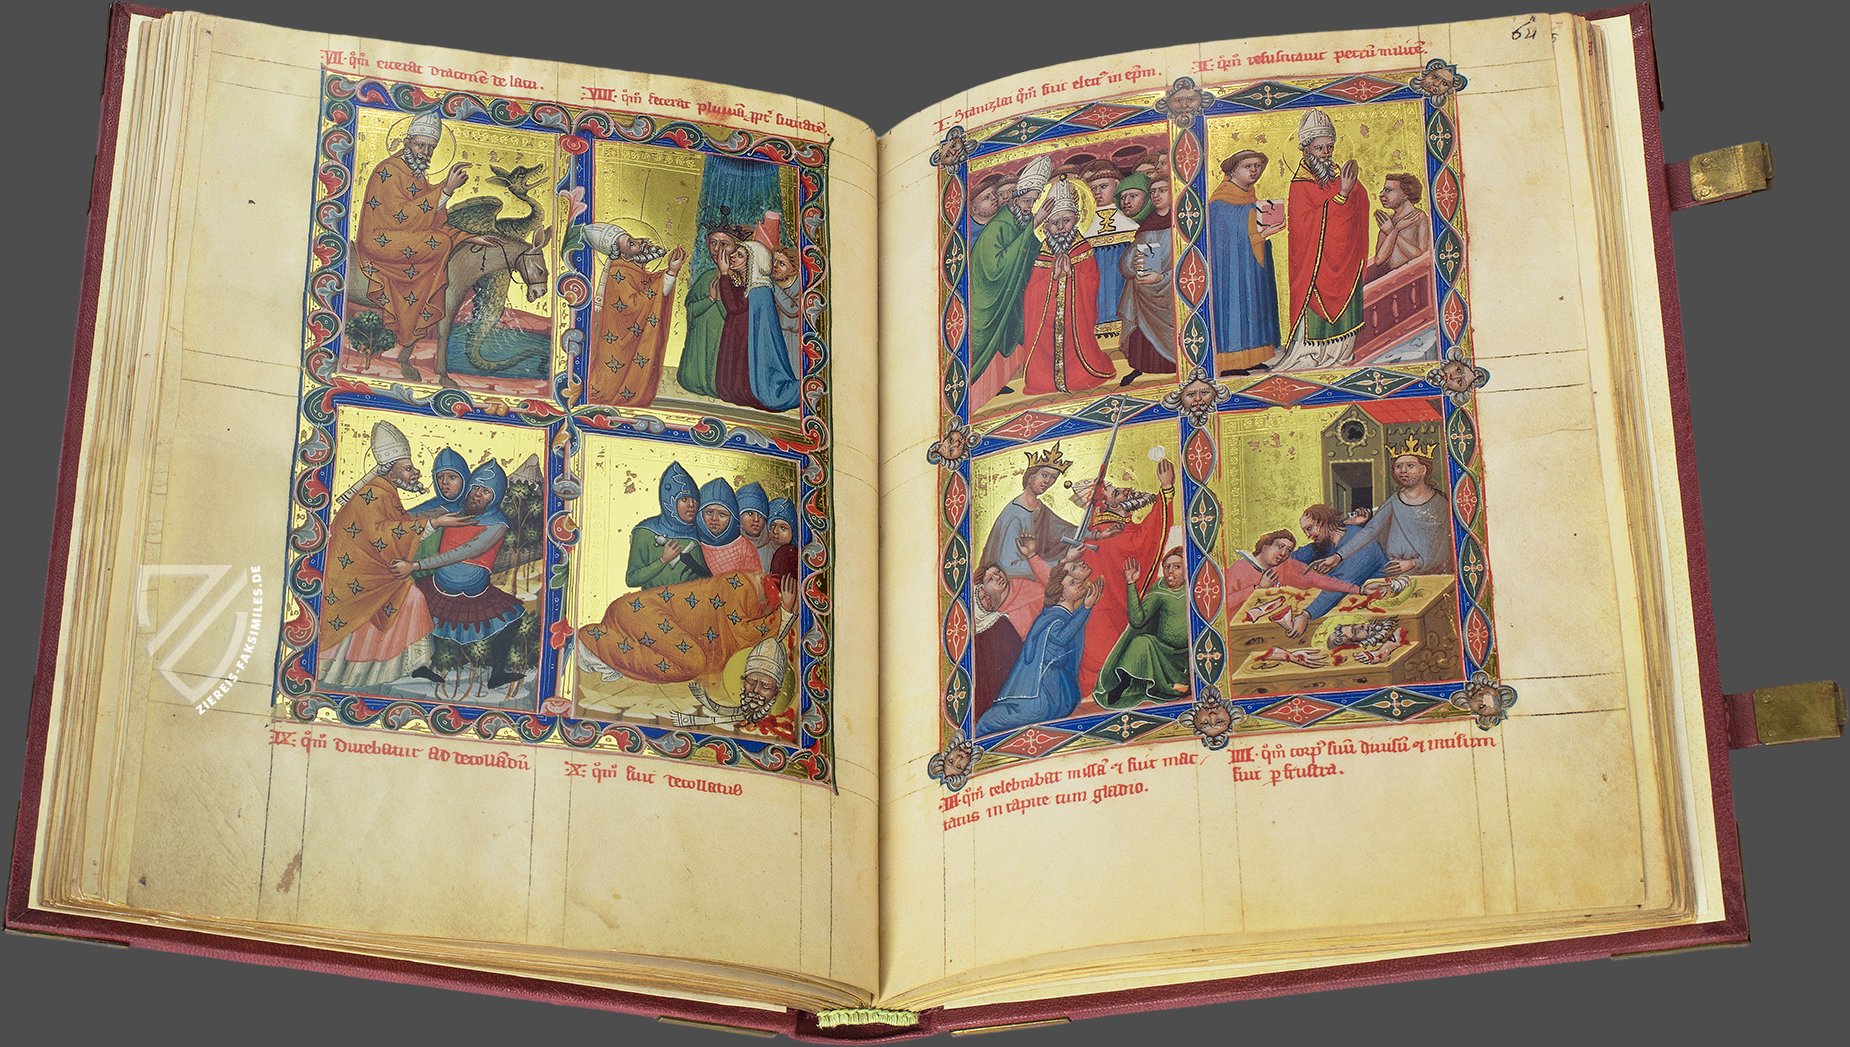 VII· qm̄ eicerat draconē de lacu.
VIII· qm̄ fecerat pluuiā ꝓpt̄ siccitatē.
·IX· qm̄ ducebatur ad decollandū
·X· qm̄ fuit decollatus
64
·I· Stanizlai qm̄ fuit elect9 in ep̄m.
·II· qm̄ resuscitauit petrū militē.
·III· qm̄ celebrabat missā ⁊ fuit mac
tatus in capite cum gladio.
IIII· qm̄ corp9 suū diuisū ⁊ incisum
fuit ꝑ frustra.
ZIEREIS-FAKSIMILES.DE